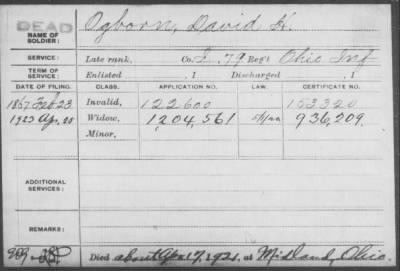 DEAD
NAME OF SOLDIER: Ogborn, David H.
SERVICE: Late rank, Co. I, 79 Reg't Ohio Inf
TERM OF SERVICE: Enlisted , 1 Discharged , 1
DATE OF FILING. CLASS. APPLICATION NO. LAW. CERTIFICATE NO.
1867 Feb 23 Invalid, 122600 153320
1923 Apr. 25 Widow, 1204,561 936,209.
Minor,
ADDITIONAL SERVICES:
REMARKS:
Died about Apr 17, 1921, at Midland, Ohio.